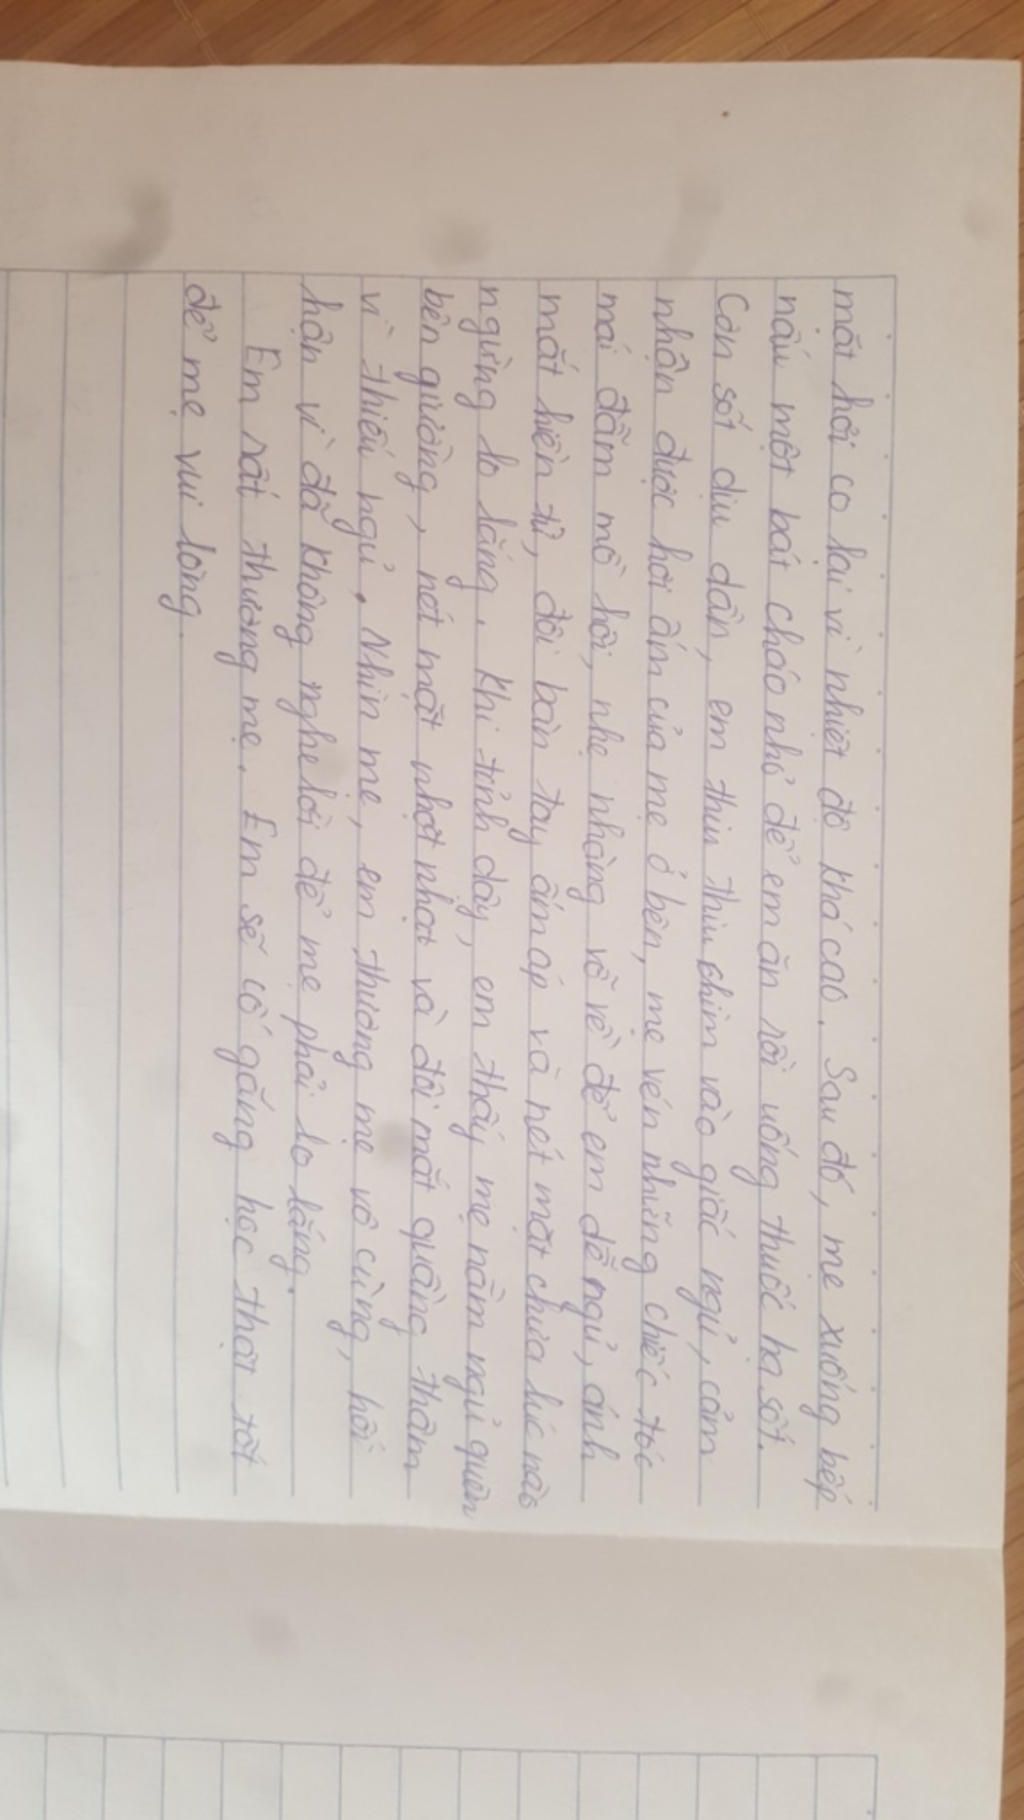 mắt hơi co lại vì nhiệt độ khá cao. Sau đó, mẹ xuống bếp
nấu một bát cháo nhỏ để em ăn rồi uống thuốc hạ sốt.
Cơn sốt dịu dần, em thiu thiu chìm vào giấc ngủ, cảm
nhận được hơi ấm của mẹ ở bên, mẹ vén những chiếc tóc
mai đẫm mồ hôi, nhẹ nhàng vỗ về để em dễ ngủ, ánh
mắt hiền từ, đôi bàn tay ấm áp và nét mặt chưa lúc nào
ngừng lo lắng. Khi tỉnh dậy, em thấy mẹ nằm ngủ quên
bên giường, nét mặt nhợt nhạt và đôi mắt quầng thâm
vì thiếu ngủ. Nhìn mẹ, em thương mẹ vô cùng, hối
hận vì đã không nghe lời để mẹ phải lo lắng.
Em rất thương mẹ. Em sẽ cố gắng học thật tốt
để mẹ vui lòng.